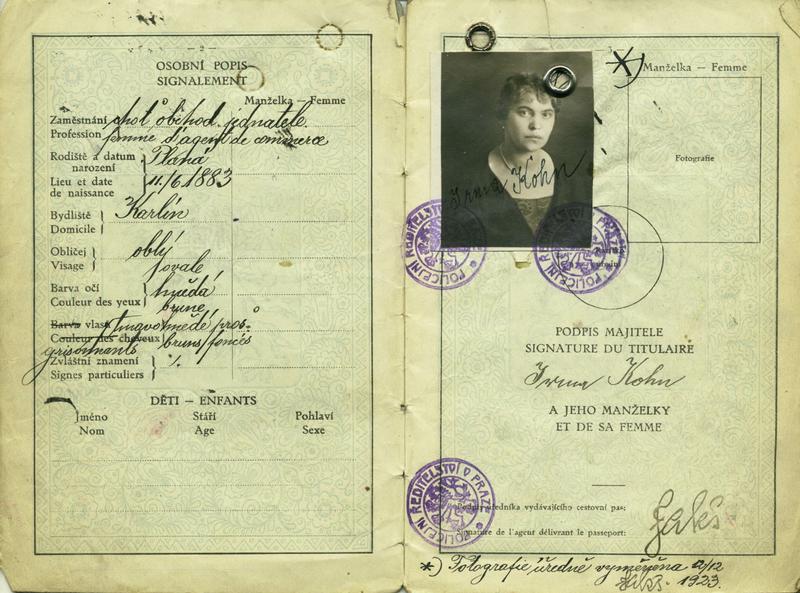 — 2 —
OSOBNÍ POPIS
SIGNALEMENT
Manželka — Femme
Zaměstnání choť obchod. jednatele.
Profession femme d'agent de commerce
Rodiště a datum narození Planá
Lieu et date de naissance 11./6 1883
Bydliště Karlín
Domicile
Obličej oblý
Visage /ovale/
Barva očí hnědá
Couleur des yeux brune,
Barva vlasů
Couleur des cheveux bruns/foncés
grisonnants
Zvláštní znamení %
Signes particuliers
DĚTI — ENFANTS
Jméno Stáří Pohlaví
Nom Age Sexe
*) Manželka — Femme
Fotografie
Irma Kohn
POLICEJNÍ ŘEDITELSTVÍ V PRAZE
POLICEJNÍ ŘEDITELSTVÍ V PRAZE
PODPIS MAJITELE
SIGNATURE DU TITULAIRE
Irma Kohn
A JEHO MANŽELKY
ET DE SA FEMME
POLICEJNÍ ŘEDITELSTVÍ V PRAZE
Podpis úředníka vydávajícího cestovní pas:
Signature de l'agent délivrant le passeport:
*) Fotografie úředně vyměněna 2/12
1923.